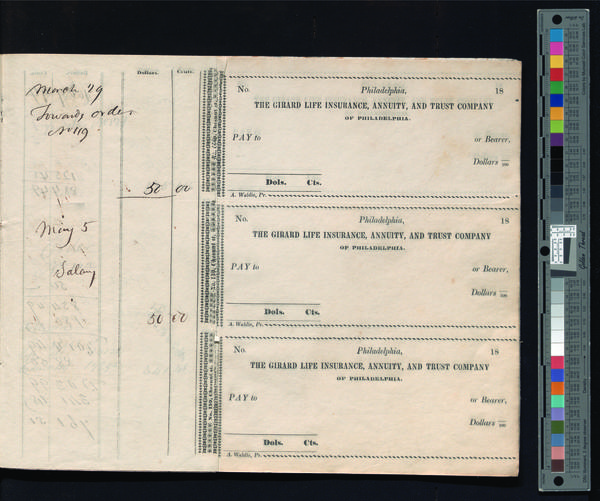 Dollars. Cents.
March 29
Towards order
No 119
50 00
May 5
Salary
50 00
No. Philadelphia, 18
THE GIRARD LIFE INSURANCE, ANNUITY, AND TRUST COMPANY
OF PHILADELPHIA.
PAY to or Bearer,
Dollars 100
Dols. Cts.
A. Waldie, Pr.
No. 159, Chesnut st.
No. Philadelphia, 18
THE GIRARD LIFE INSURANCE, ANNUITY, AND TRUST COMPANY
OF PHILADELPHIA.
PAY to or Bearer,
Dollars 100
Dols. Cts.
A. Waldie, Pr.
No. 159, Chesnut st.
No. Philadelphia, 18
THE GIRARD LIFE INSURANCE, ANNUITY, AND TRUST COMPANY
OF PHILADELPHIA.
PAY to or Bearer,
Dollars 100
Dols. Cts.
A. Waldie, Pr.
No. 159, Chesnut st.